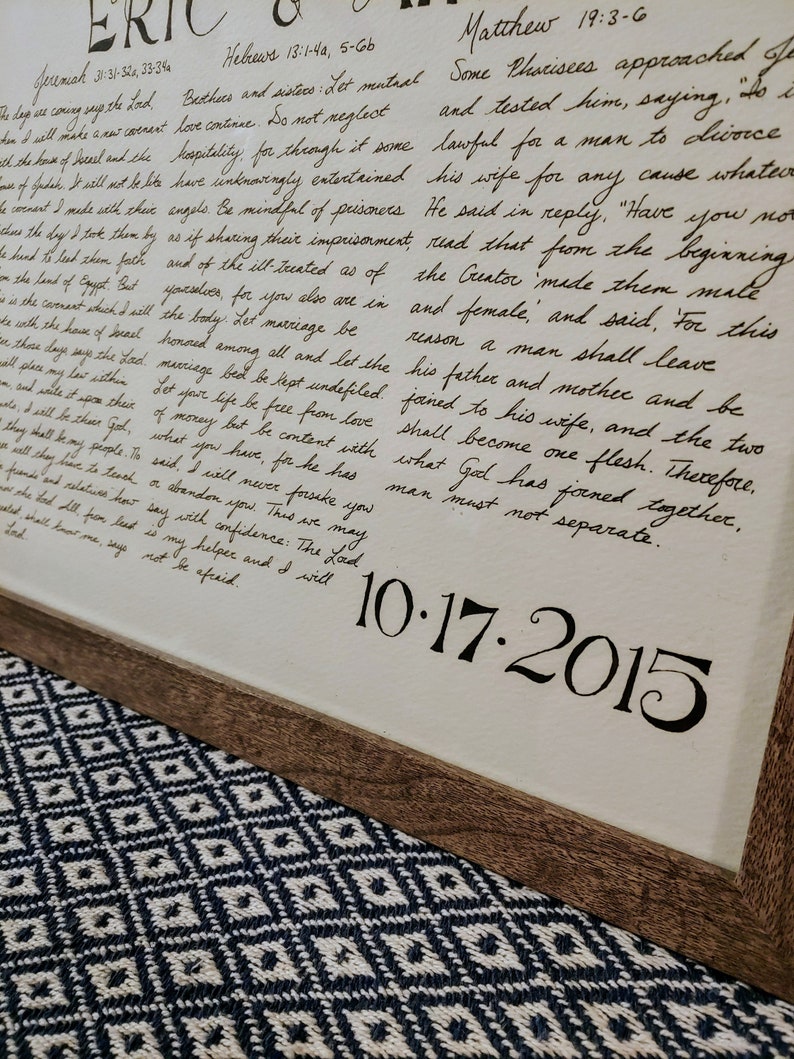 ERIC &
Jeremiah 31:31-32a, 33-34a
The days are coming says the Lord,
when I will make a new covenant
with the house of Israel and the
house of Judah. It will not be like
the covenant I made with their
fathers the day I took them by
the hand to lead them forth
from the land of Egypt. But
this is the covenant which I will
make with the house of Israel
after those days, says the Lord.
will place my law within
and write it upon their
I will be their God,
they shall be my people. To
will they have to teach
friends and relatives how
know the Lord. All, from least
greatest shall know me, says
Lord.
Hebrews 13:1-4a, 5-6b
Brothers and sisters: Let mutual
love continue. Do not neglect
hospitality, for through it some
have unknowingly entertained
angels. Be mindful of prisoners
as if sharing their imprisonment,
and of the ill-treated as of
yourselves, for you also are in
the body. Let marriage be
honored among all and let the
marriage bed be kept undefiled.
Let your life be free from love
of money but be content with
what you have, for he has
said, I will never forsake you
or abandon you. Thus we may
say with confidence: The Lord
is my helper and I will
not be afraid.
Matthew 19:3-6
Some Pharisees approached Je
and tested him, saying, "Is i
lawful for a man to divorce
his wife for any cause whatever
He said in reply, "Have you not
read that from the beginning
the Creator 'made them male
and female,' and said, 'For this
reason a man shall leave
his father and mother and be
joined to his wife, and the two
shall become one flesh. Therefore,
what God has joined together,
man must not separate.
10·17·2015